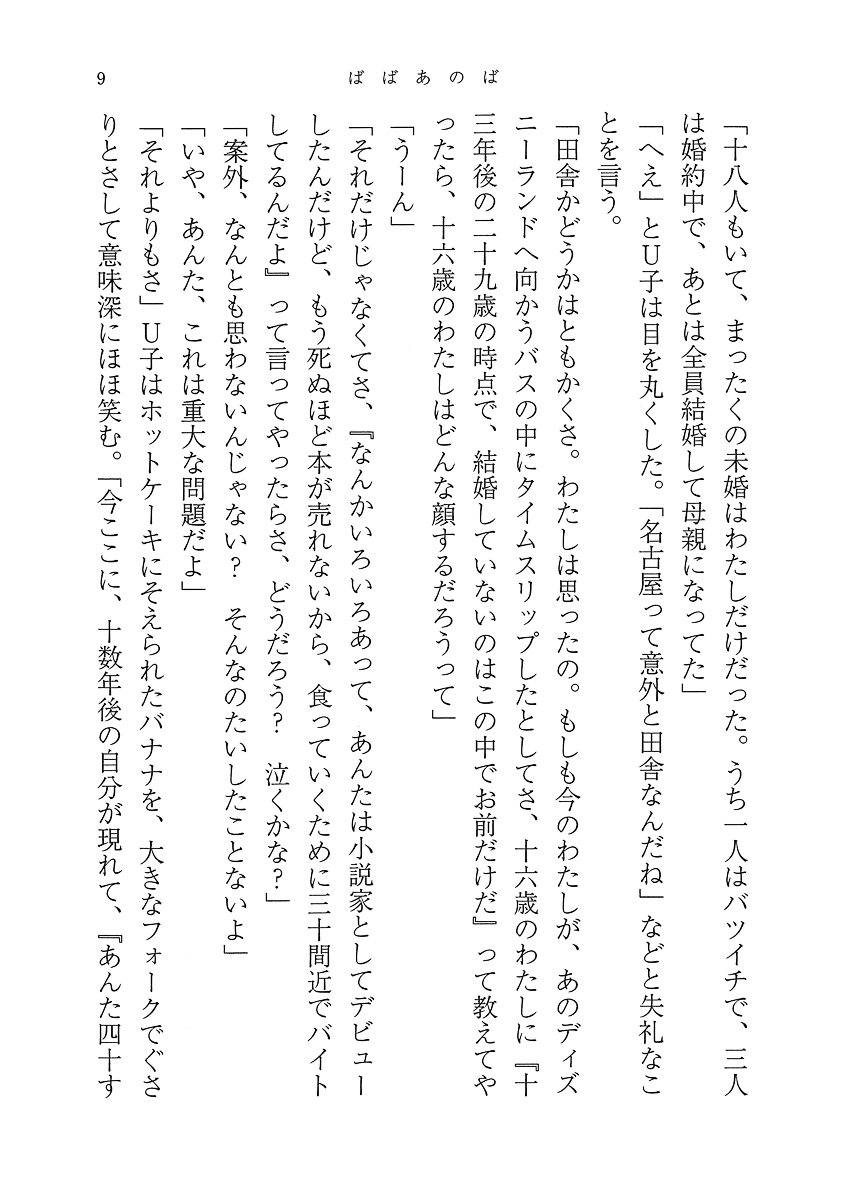 9
ばばあのば
「十八人もいて、まったくの未婚はわたしだけだった。うち一人はバツイチで、三人
は婚約中で、あとは全員結婚して母親になってた」
「へえ」とU子は目を丸くした。「名古屋って意外と田舎なんだね」などと失礼なこ
とを言う。
「田舎かどうかはともかくさ。わたしは思ったの。もしも今のわたしが、あのディズ
ニーランドへ向かうバスの中にタイムスリップしたとしてさ、十六歳のわたしに『十
三年後の二十九歳の時点で、結婚していないのはこの中でお前だけだ』って教えてや
ったら、十六歳のわたしはどんな顔するだろうって」
「うーん」
「それだけじゃなくてさ、『なんかいろいろあって、あんたは小説家としてデビュー
したんだけど、もう死ぬほど本が売れないから、食っていくために三十間近でバイト
してるんだよ』って言ってやったらさ、どうだろう?　泣くかな?」
「案外、なんとも思わないんじゃない?　そんなのたいしたことないよ」
「いや、あんた、これは重大な問題だよ」
「それよりもさ」U子はホットケーキにそえられたバナナを、大きなフォークでぐさ
りとさして意味深にほほ笑む。「今ここに、十数年後の自分が現れて、『あんた四十す